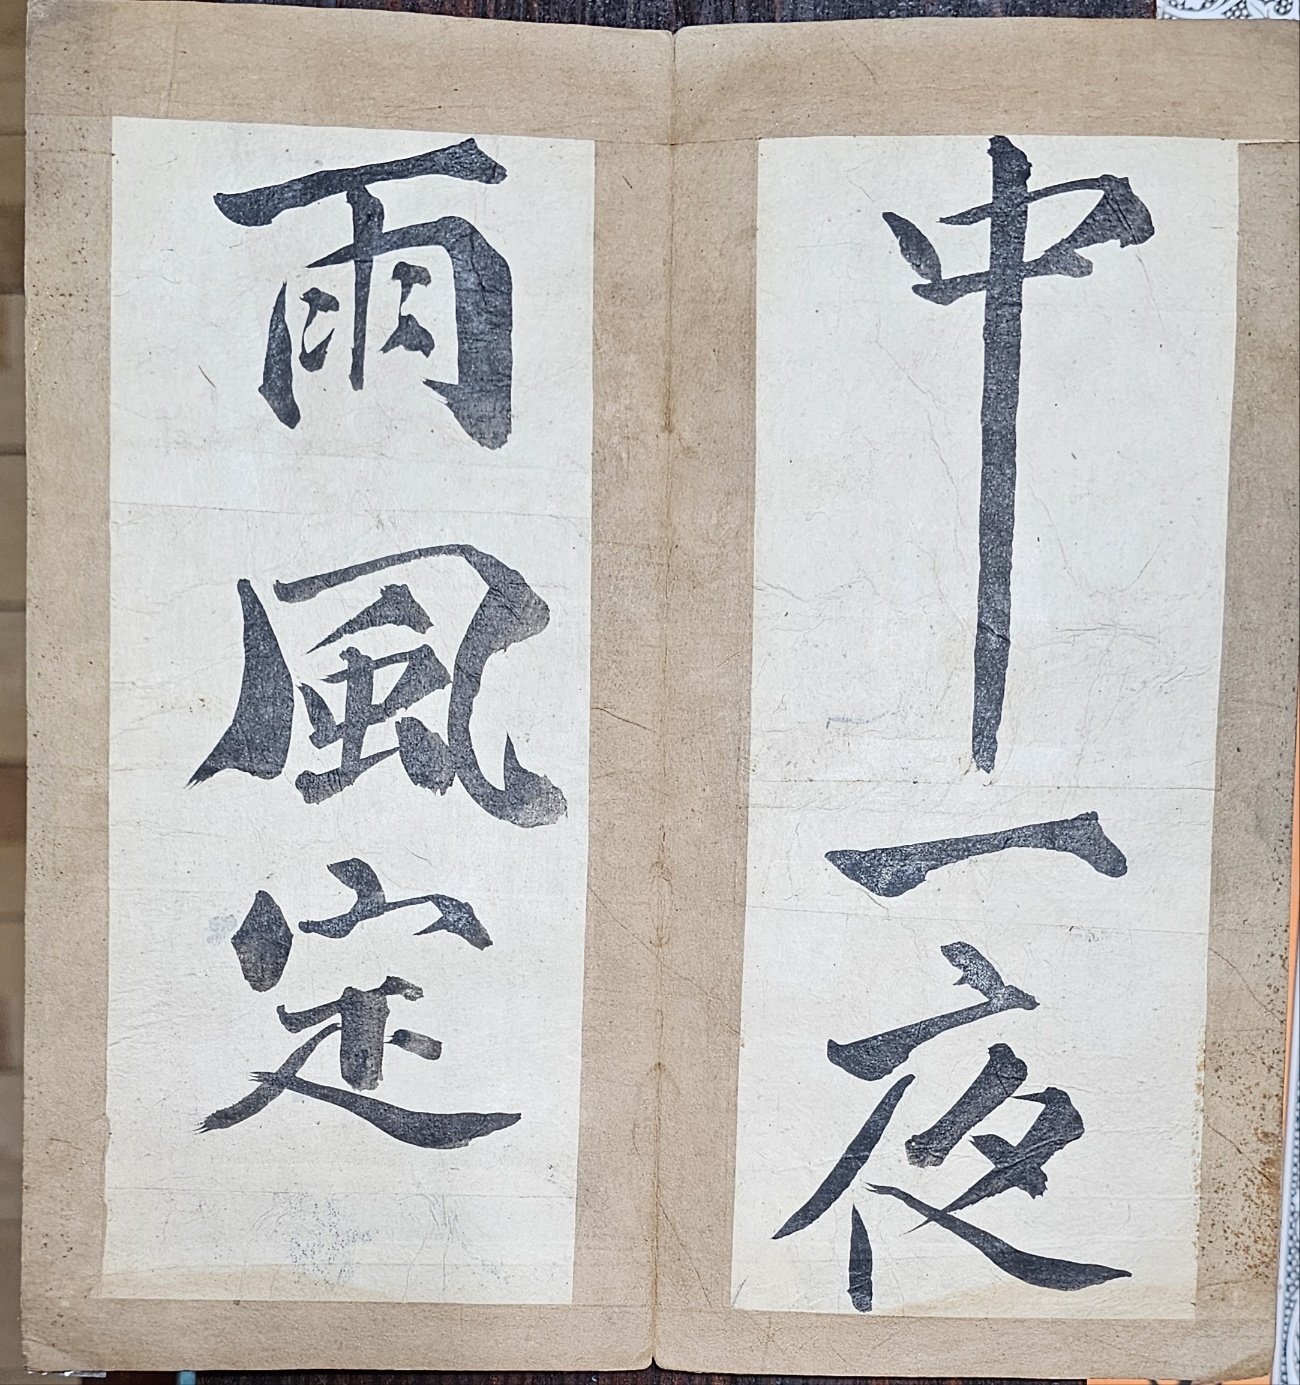 中一夜
雨風定